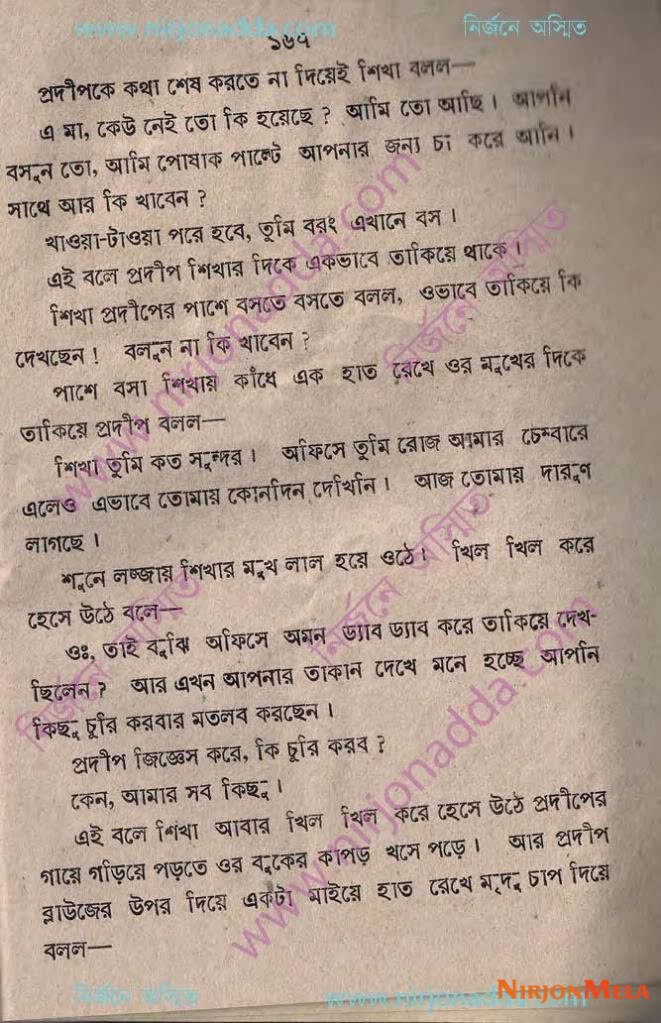 www.nirjonadda.com নির্জনে অস্মিত
১৬৭
প্রদীপকে কথা শেষ করতে না দিয়েই শিখা বলল—
এ মা, কেউ নেই তো কি হয়েছে ? আমি তো আছি। আপনি
বসুন তো, আমি পোষাক পাল্টে আপনার জন্য চা করে আনি।
সাথে আর কি খাবেন ?
খাওয়া-টাওয়া পরে হবে, তুমি বরং এখানে বস ।
এই বলে প্রদীপ শিখার দিকে একভাবে তাকিয়ে থাকে ।
শিখা প্রদীপের পাশে বসতে বসতে বলল, ওভাবে তাকিয়ে কি
দেখছেন ! বলুন না কি খাবেন ?
পাশে বসা শিখায় কাঁধে এক হাত রেখে ওর মুখের দিকে
তাকিয়ে প্রদীপ বলল—
শিখা তুমি কত সুন্দর । অফিসে তুমি রোজ আমার চেম্বারে
এলেও এভাবে তোমায় কোনদিন দেখিনি । আজ তোমায় দারুণ
লাগছে ।
শুনে লজ্জায় শিখার মুখ লাল হয়ে ওঠে । খিল খিল করে
হেসে উঠে বলে—
ওঃ, তাই বুঝি অফিসে অমন ড্যাব ড্যাব করে তাকিয়ে দেখ-
ছিলেন ? আর এখন আপনার তাকান দেখে মনে হচ্ছে আপনি
কিছু চুরি করবার মতলব করছেন ।
প্রদীপ জিজ্ঞেস করে, কি চুরি করব ?
কেন, আমার সব কিছু ।
এই বলে শিখা আবার খিল খিল করে হেসে উঠে প্রদীপের
গায়ে গড়িয়ে পড়তে ওর বুকের কাপড় খসে পড়ে । আর প্রদীপ
ব্লাউজের উপর দিয়ে একটা মাইয়ে হাত রেখে মৃদু চাপ দিয়ে
বলল—
নির্জনে অস্মিত www.nirjonadda.com
NIRJONMELA
www.nirjonadda.com
নির্জনে অস্মিত
নির্জনে অস্মিত
নির্জনে অস্মিত
www.nirjonadda.com